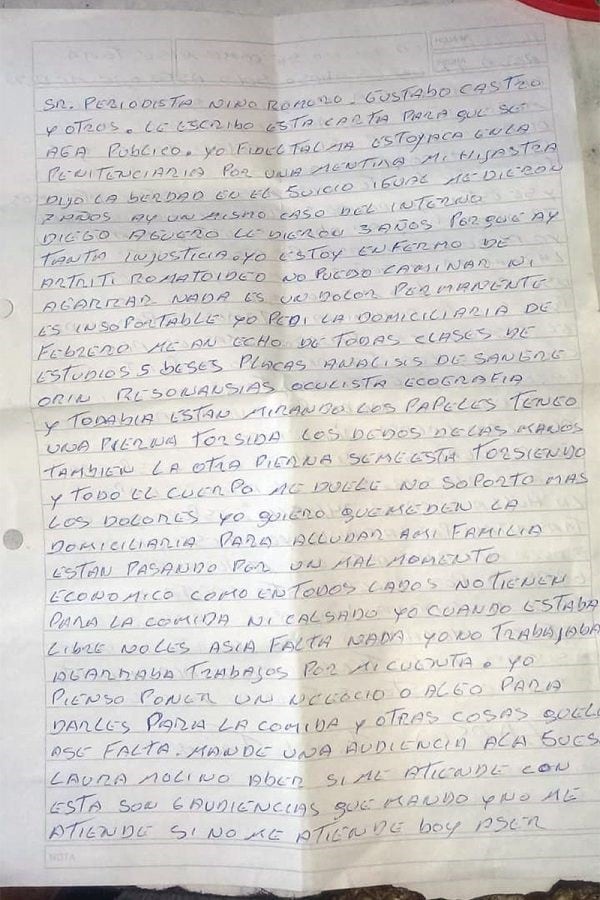 SR. PERIODISTA NINO ROMERO. GUSTABO CASTRO
Y OTROS. LE ESCRIBO ESTA CARTA PARA QUE SE
AGA PUBLICO. YO FIDEL TALMA ESTOY ACA EN LA
PENITENCIARIA POR UNA MENTIRA MI HIJASTRA
DIJO LA BERDAD EN EL JUICIO IGUAL ME DIERON
7 AÑOS AY UN MISMO CASO DEL INTERNO
DIEGO AGUERO LE DIERON 3 AÑOS PORQUE AY
TANTA INJUSTICIA. YO ESTOY ENFERMO DE
ARTRITI ROMATOIDEO NO PUEDO CAMINAR NI
AGARRAR NADA ES UN DOLOR PERMANENTE
ES INSOPORTABLE YO PEDI LA DOMICILIARIA DE
FEBRERO ME AN ECHO DE TODAS CLASES DE
ESTUDIOS 5 BESES PLACAS ANALISIS DE SANGRE
ORIN RESONANSIAS OCULISTA ECOGRAFIA
Y TODABIA ESTAN MIRANDO LOS PAPELES TENGO
UNA PIERNA TORSIDA LOS DEDOS DE LAS MANOS
TAMBIEN LA OTRA PIERNA SEME ESTA TORSIENDO
Y TODO EL CUERPO ME DUELE NO SOPORTO MAS
LOS DOLORES YO QUIERO QUE ME DEN LA
DOMICILIARIA PARA ALLUDAR AMI FAMILIA
ESTAN PASANDO POR UN MAL MOMENTO
ECONOMICO COMO EN TODOS LADOS NO TIENEN
PARA LA COMIDA NI CALSADO YO CUANDO ESTABA
LIBRE NO LES ASIA FALTA NADA YO NO TRABAJABA
AGARRABA TRABAJOS POR MI CUENTA. YO
PIENSO PONER UN NEGOCIO O ALGO PARA
DARLES PARA LA COMIDA Y OTRAS COSAS QUELE
ASE FALTA. MANDE UNA AUDIENCIA ALA JUES
LAURA MOLINO ABER SI ME ATIENDE CON
ESTA SON 6 AUDIENCIAS QUE MANDO Y NO ME
ATIENDE SI NO ME ATIENDE BOY ASER
NOTA